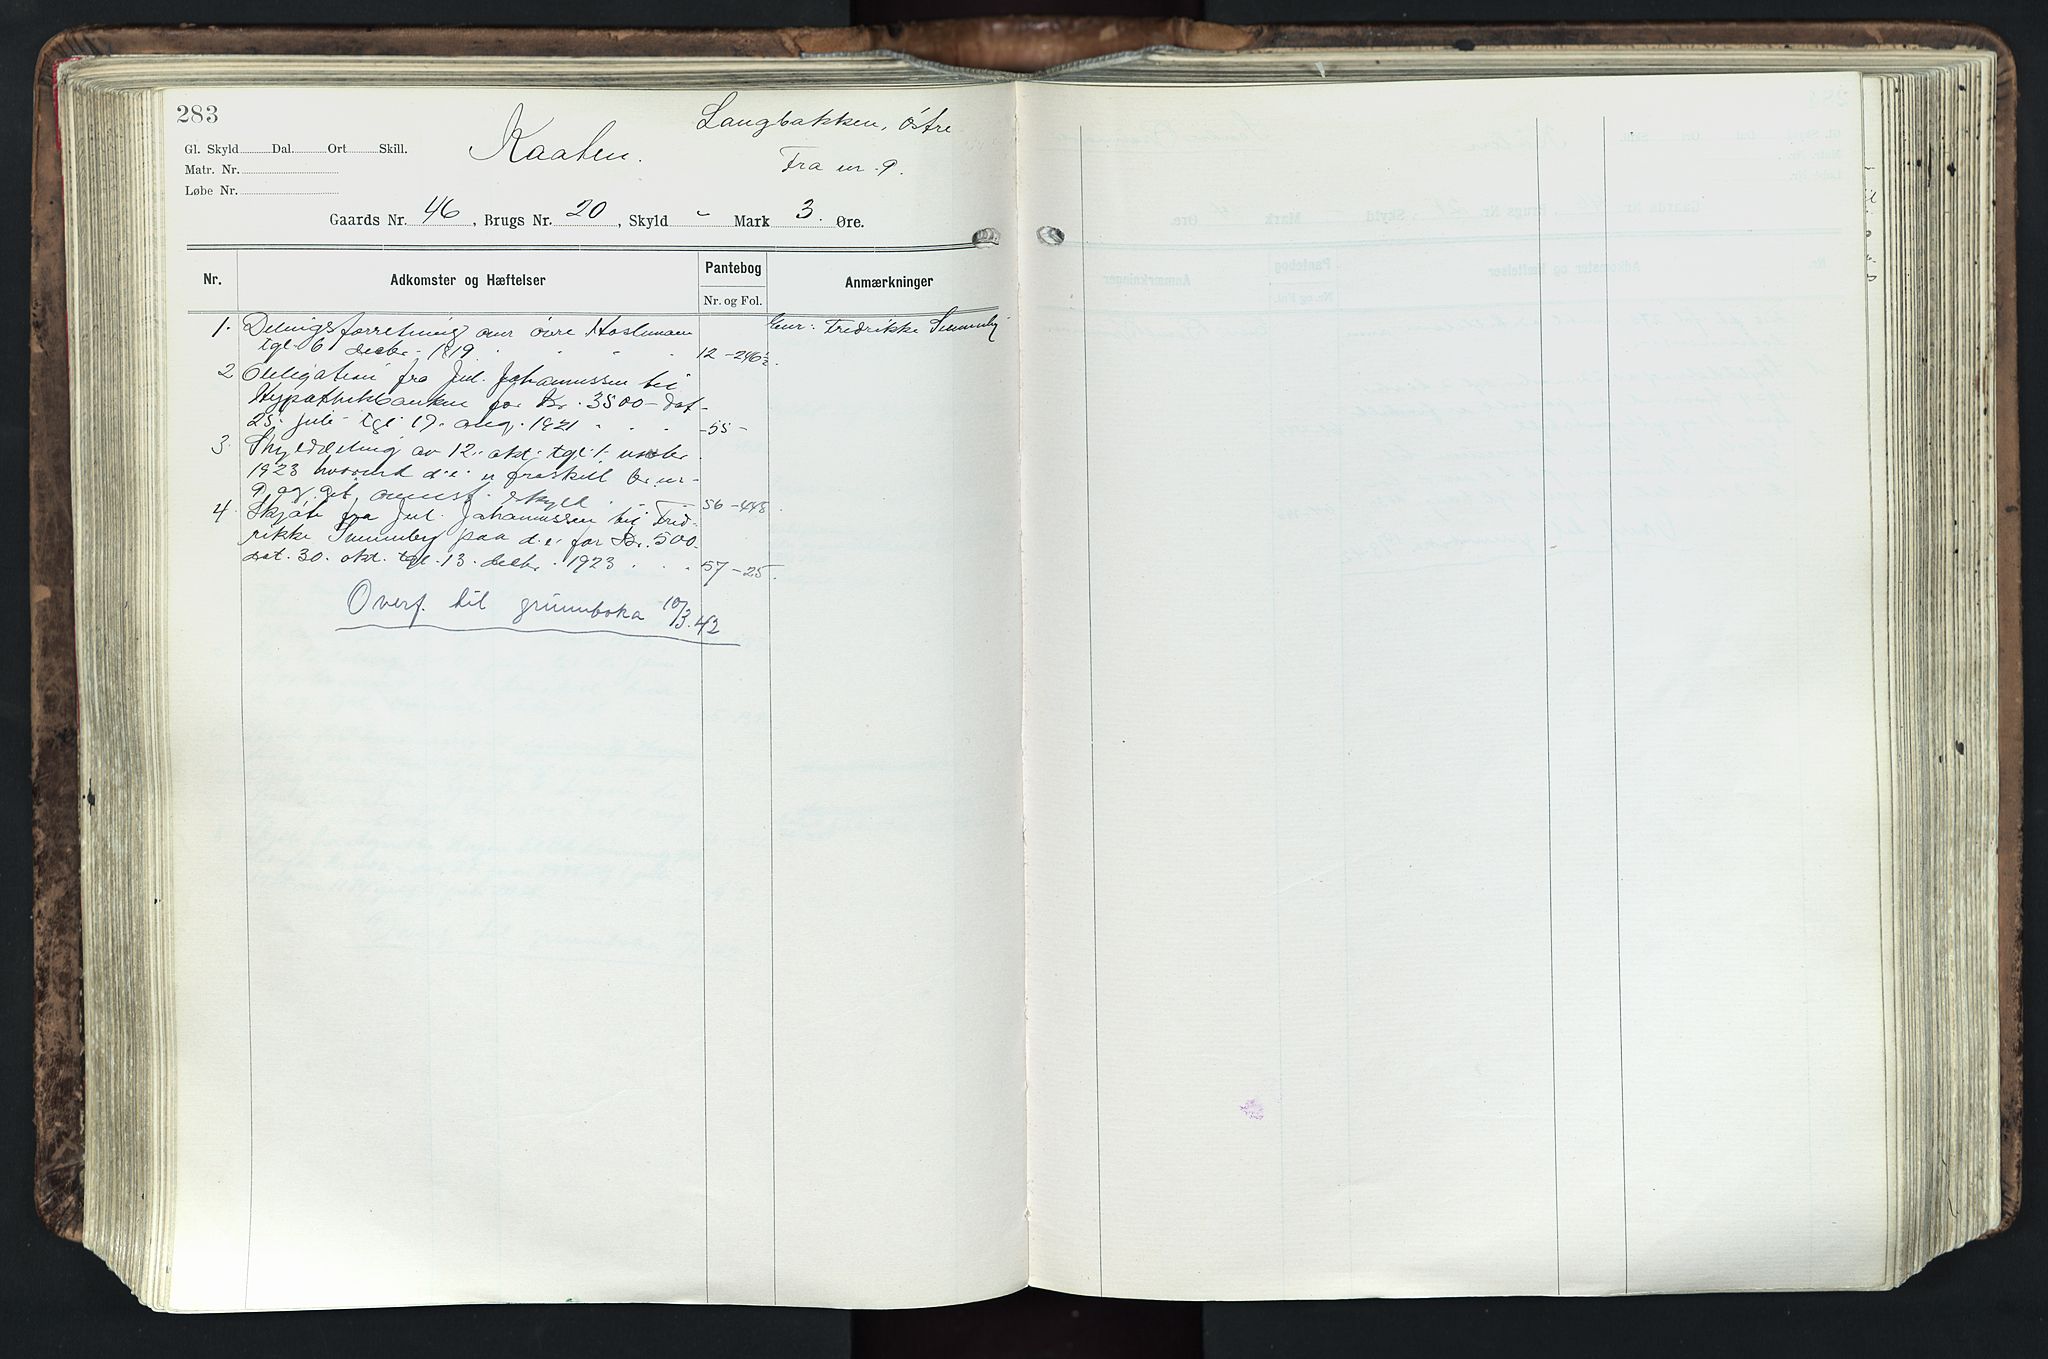 283
Kaaten.
Langbakken, østre
Fra nr. 9.
Gl. Skyld Dal. Ort Skill.
Matr. Nr.
Løbe Nr.
Gaards Nr. 46, Brugs Nr. 20, Skyld " Mark 3. Øre.
Nr. Adkomster og Hæftelser Pantebog Anmærkninger
Nr. og Fol.
1. Delingsforretning om övre Eier: Fredrikke
tgl. 6 decbr. 1819 12-246½.
2 Obligation fra Jul. Johannessen til
Hypothekbanken for Kr. 3500- dat
25. juli tgl 17. aug. 1921 -55-
3. Skylddeling av 12. okt. tgl. 1. novbr
1923 hvorved d.e. er fraskilt br.nr-
9 og git ovenst. skyld. 56-448.
4. Skjöte fra Jul. Johannessen til Fred-
rikke paa d.e. for Kr. 500-
dat. 30. okt. tgl. 13. decbr. 1923 57-25.
Overf. til grunnboka 10/3.42